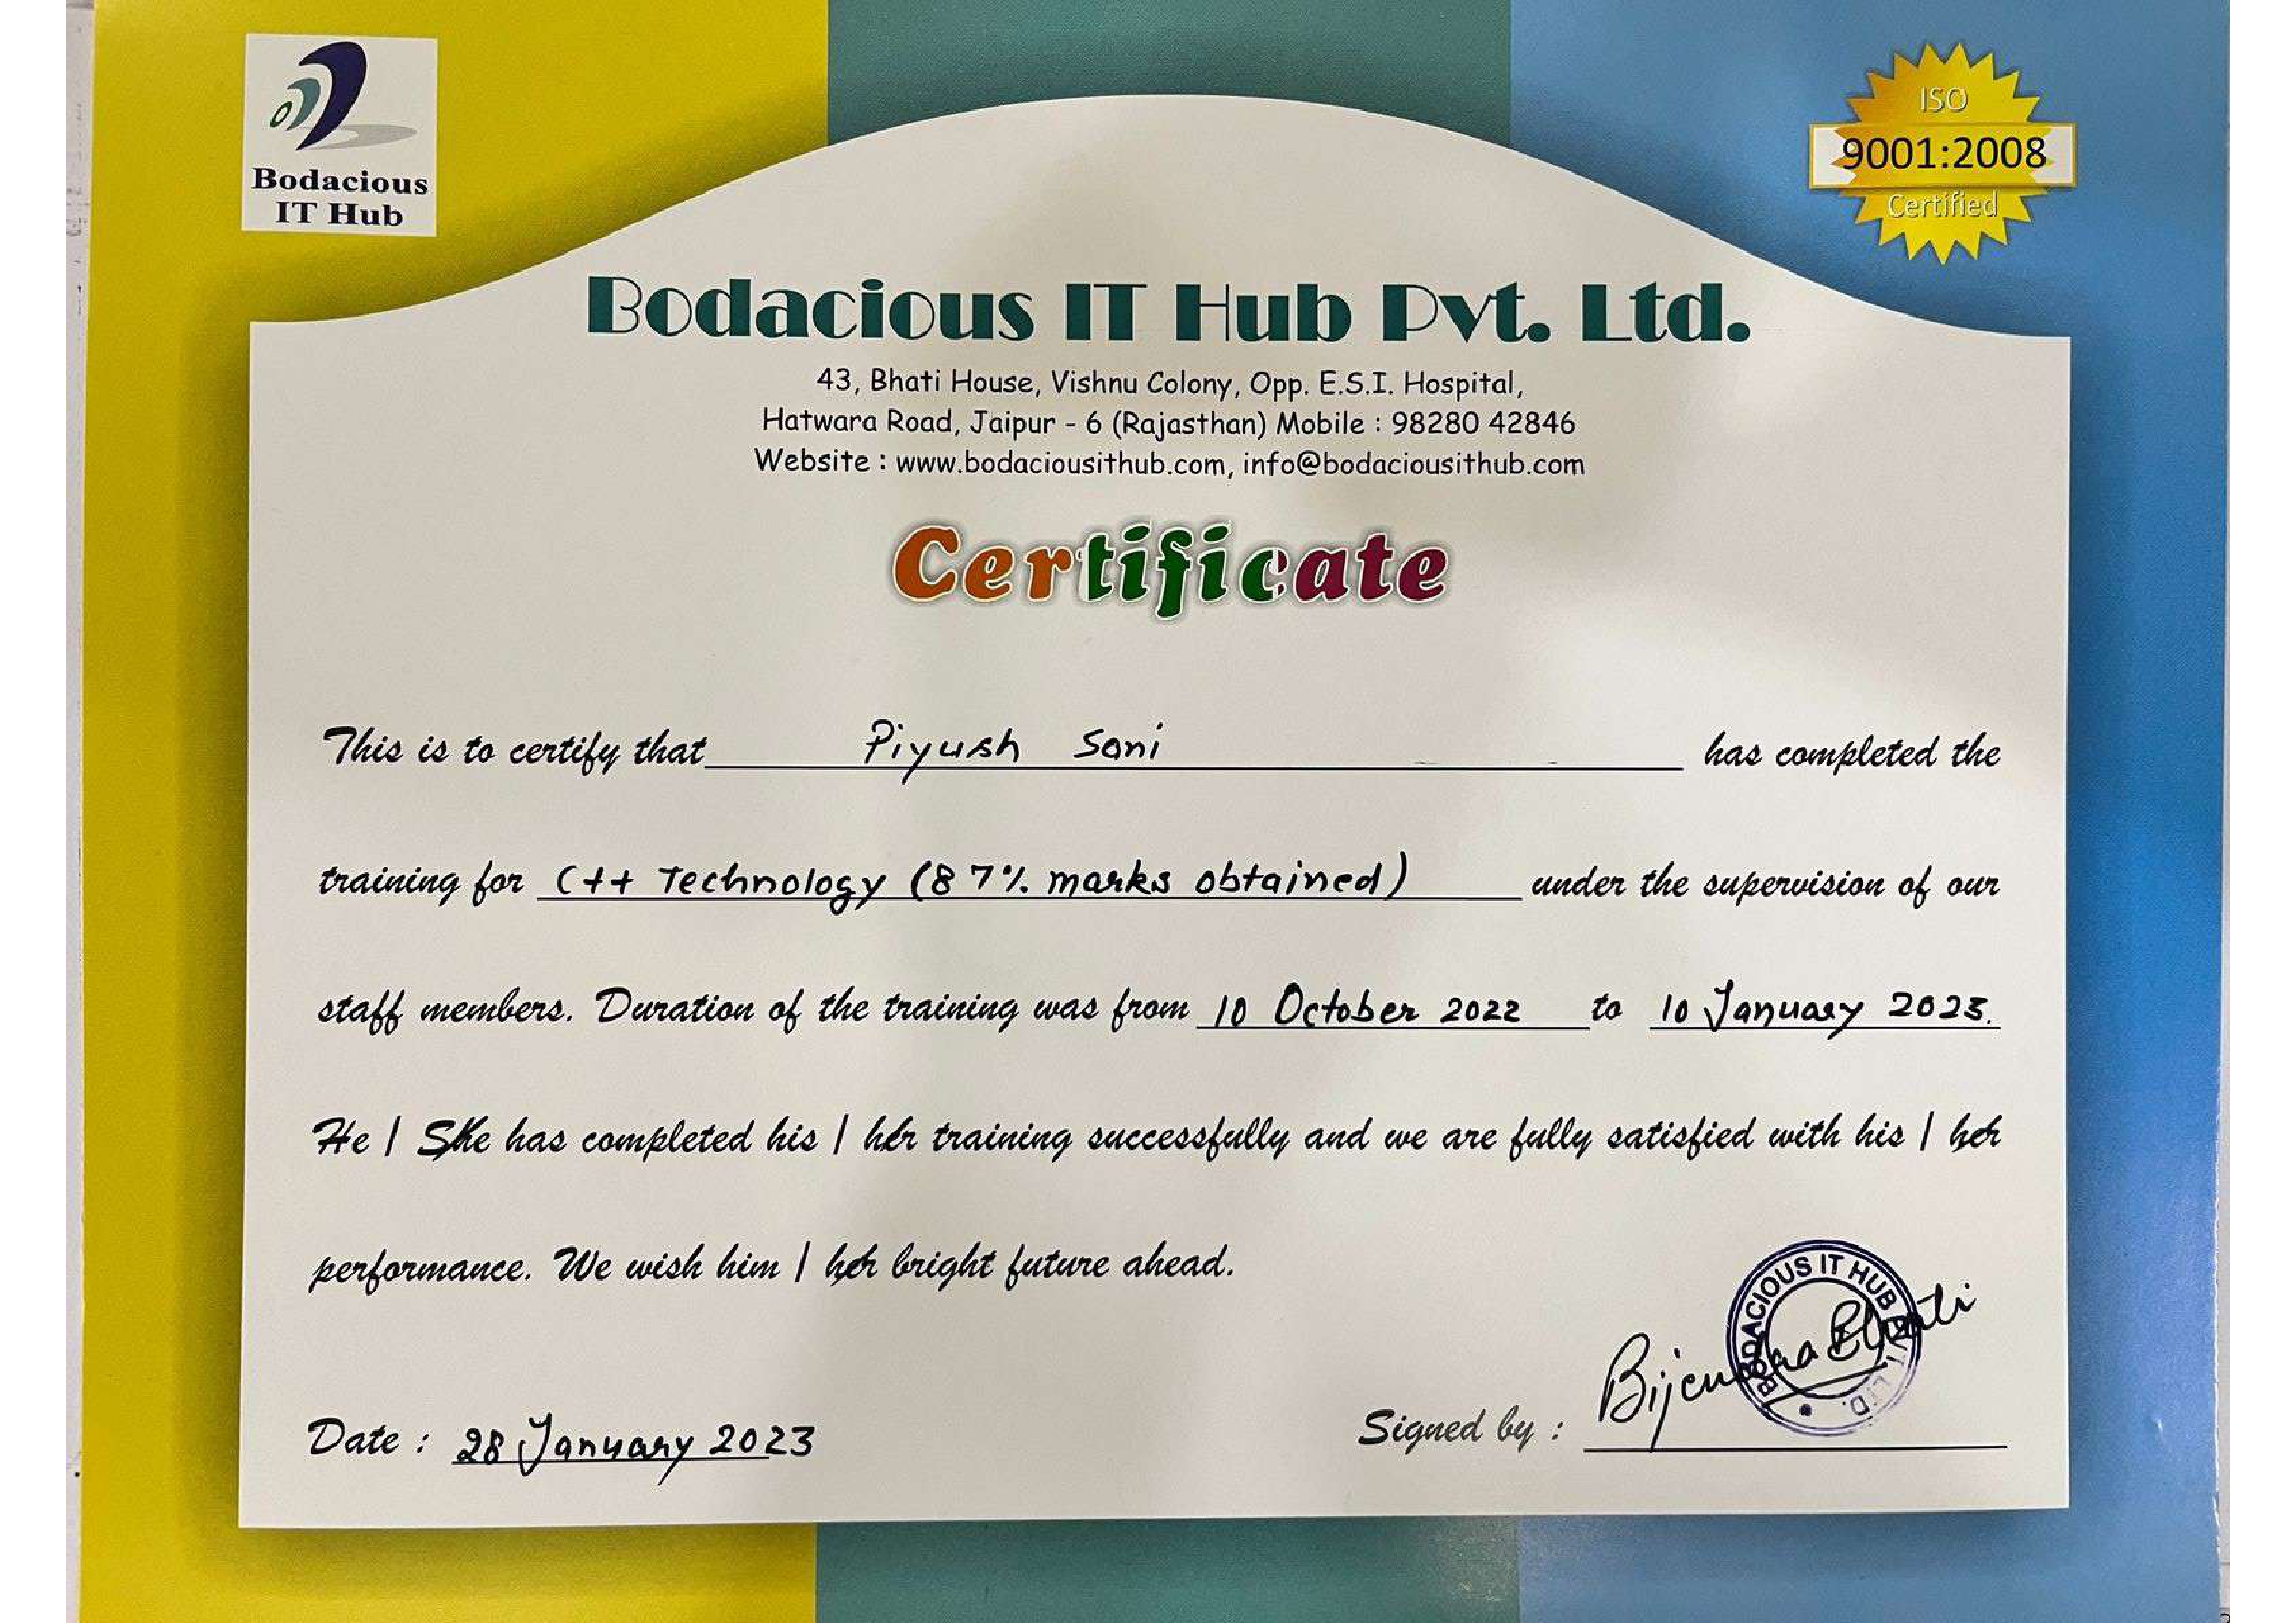 Bodacious
IT Hub
ISO
9001:2008
Certified
Bodacious IT Hub Pvt. Ltd.
43, Bhati House, Vishnu Colony, Opp. E.S.I. Hospital,
Hatwara Road, Jaipur - 6 (Rajasthan) Mobile : 98280 42846
Website : www.bodaciousithub.com, info@bodaciousithub.com
Certificate
This is to certify that Piyush Soni has completed the
training for C++ Technology (87% marks obtained) under the supervision of our
staff members. Duration of the training was from 10 October 2022 to 10 January 2023.
He / She has completed his / her training successfully and we are fully satisfied with his / her
performance. We wish him / her bright future ahead.
BODACIOUS IT HUB PVT. LTD.
Bijendra Bhati
Date : 28 January 2023
Signed by :